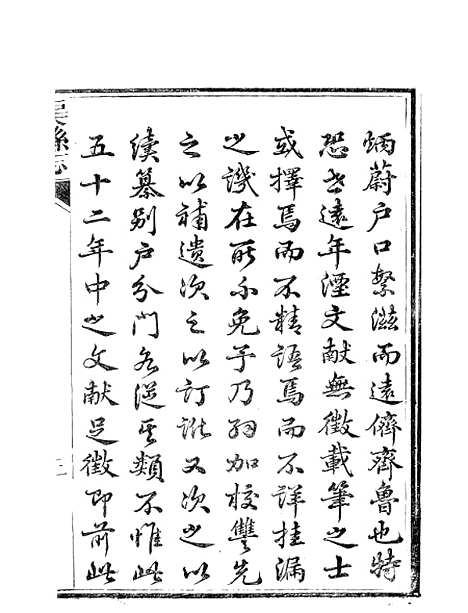 炳蔚户口繁滋而遠儕齊魯也特
恐世遠年湮文献無徵載筆之士
或擇焉而不精語焉而不詳挂漏
之譏在所不免予乃細加校讐先
之以補遺次之以訂訛又次之以
續纂别户分門各從其類不惟此
五十二年中之文献足徵即前此
縣志